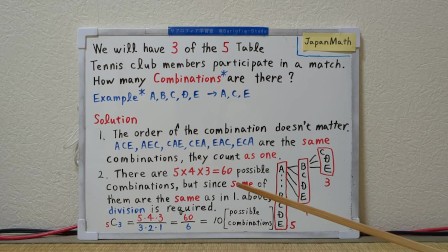 JapanMath
We will have 3 of the 5 Table
Tennis club members participate in a match.
How many Combinations* are there?
Example* A,B,C,D,E → A,C,E
Solution
1. The order of the combination doesn't matter.
ACE, AEC, CAE, CEA, EAC, ECA are the same
combinations, they count as one.
2. There are 5×4×3=60 possible
combinations, but since some of
them are the same as in 1. above,
division is required.
5C3 = 5·4·3/3·2·1 = 60/6 = 10 [possible combinations]
A
B
C
D
E
5
B
C
D
E
C
D
E
3